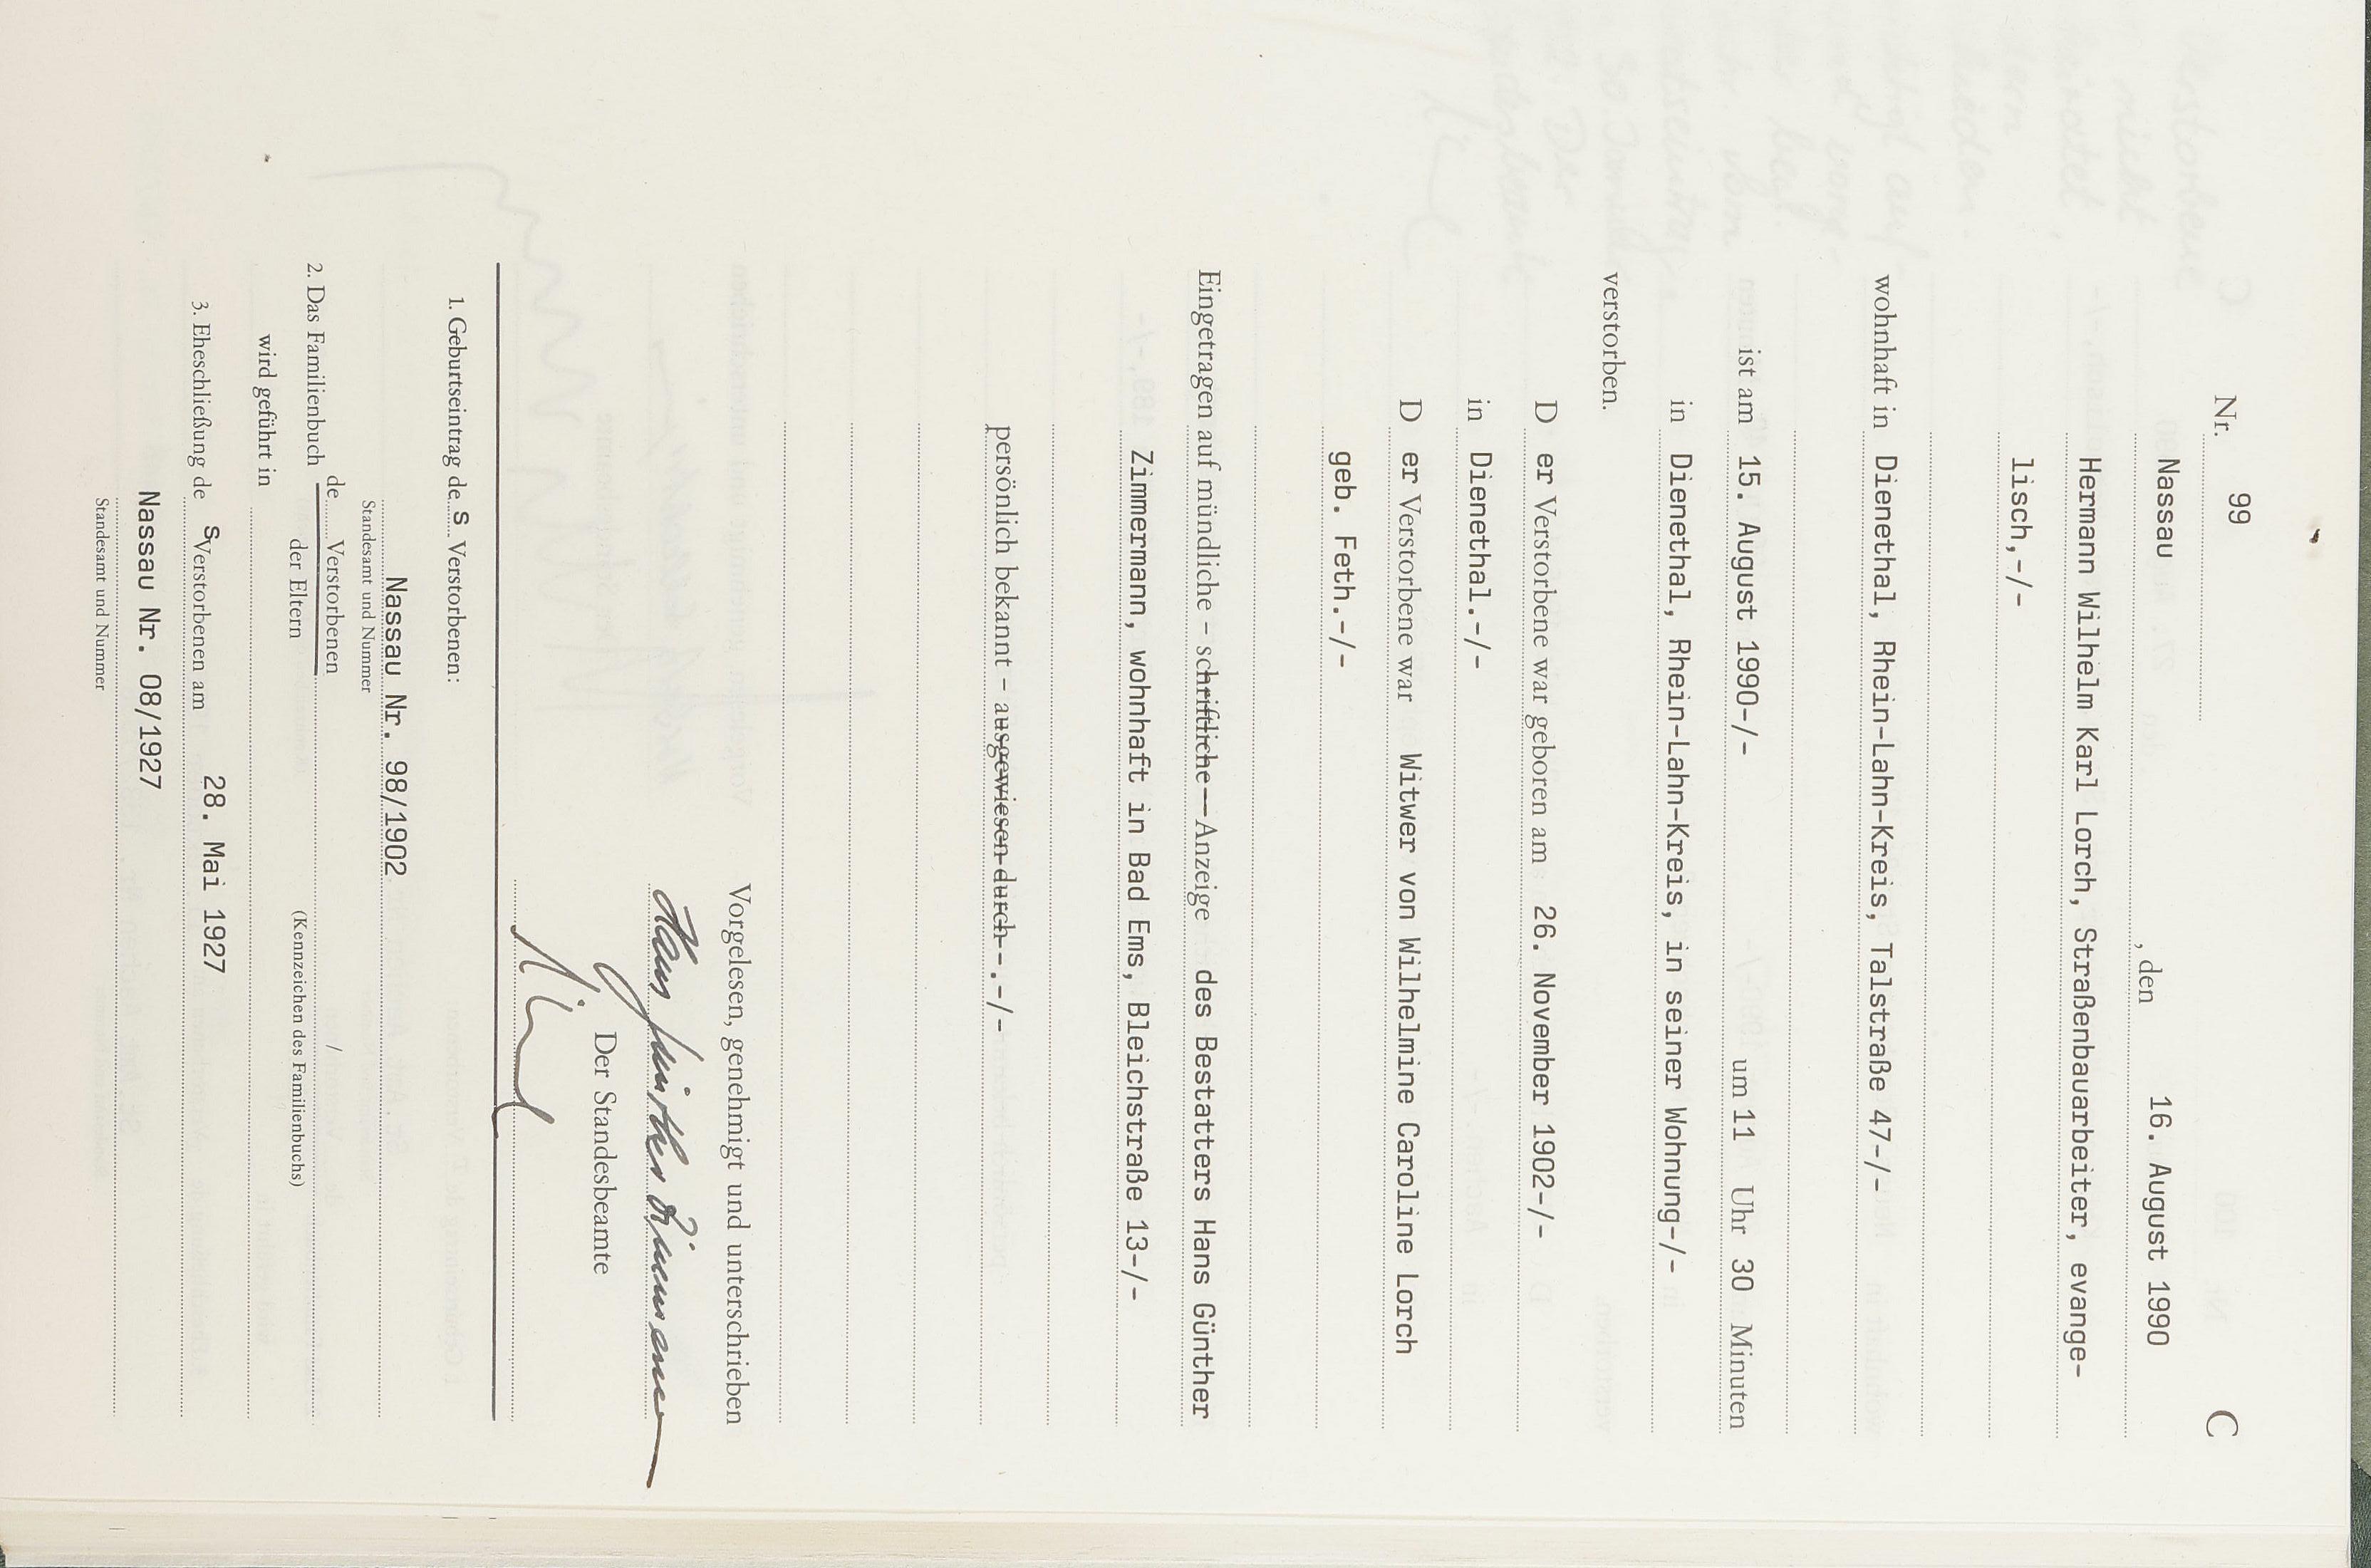 Nr. 99 C
Nassau , den 16. August 1990
Hermann Wilhelm Karl Lorch, Straßenbauarbeiter, evange-
lisch,-/-
wohnhaft in Dienethal, Rhein-Lahn-Kreis, Talstraße 47-/-
ist am 15. August 1990-/- um 11 Uhr 30 Minuten
in Dienethal, Rhein-Lahn-Kreis, in seiner Wohnung-/-
verstorben.
D er Verstorbene war geboren am 26. November 1902-/-
in Dienethal.-/-
D er Verstorbene war Witwer von Wilhelmine Caroline Lorch
geb. Feth.-/-
Eingetragen auf mündliche – schriftliche – Anzeige des Bestatters Hans Günther
Zimmermann, wohnhaft in Bad Ems, Bleichstraße 13-/-
persönlich bekannt – ausgewiesen durch-.-/-
Vorgelesen, genehmigt und unterschrieben
Hans Günther Zimmermann
Der Standesbeamte
1. Geburtseintrag des Verstorbenen:
Nassau Nr. 98/1902
Standesamt und Nummer
2. Das Familienbuch de Verstorbenen
der Eltern (Kennzeichen des Familienbuchs)
wird geführt in
3. Eheschließung des Verstorbenen am 28. Mai 1927
Nassau Nr. 08/1927
Standesamt und Nummer